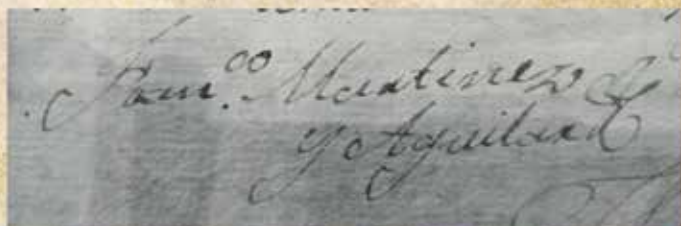 Fran.co Martinez
y Aguilar